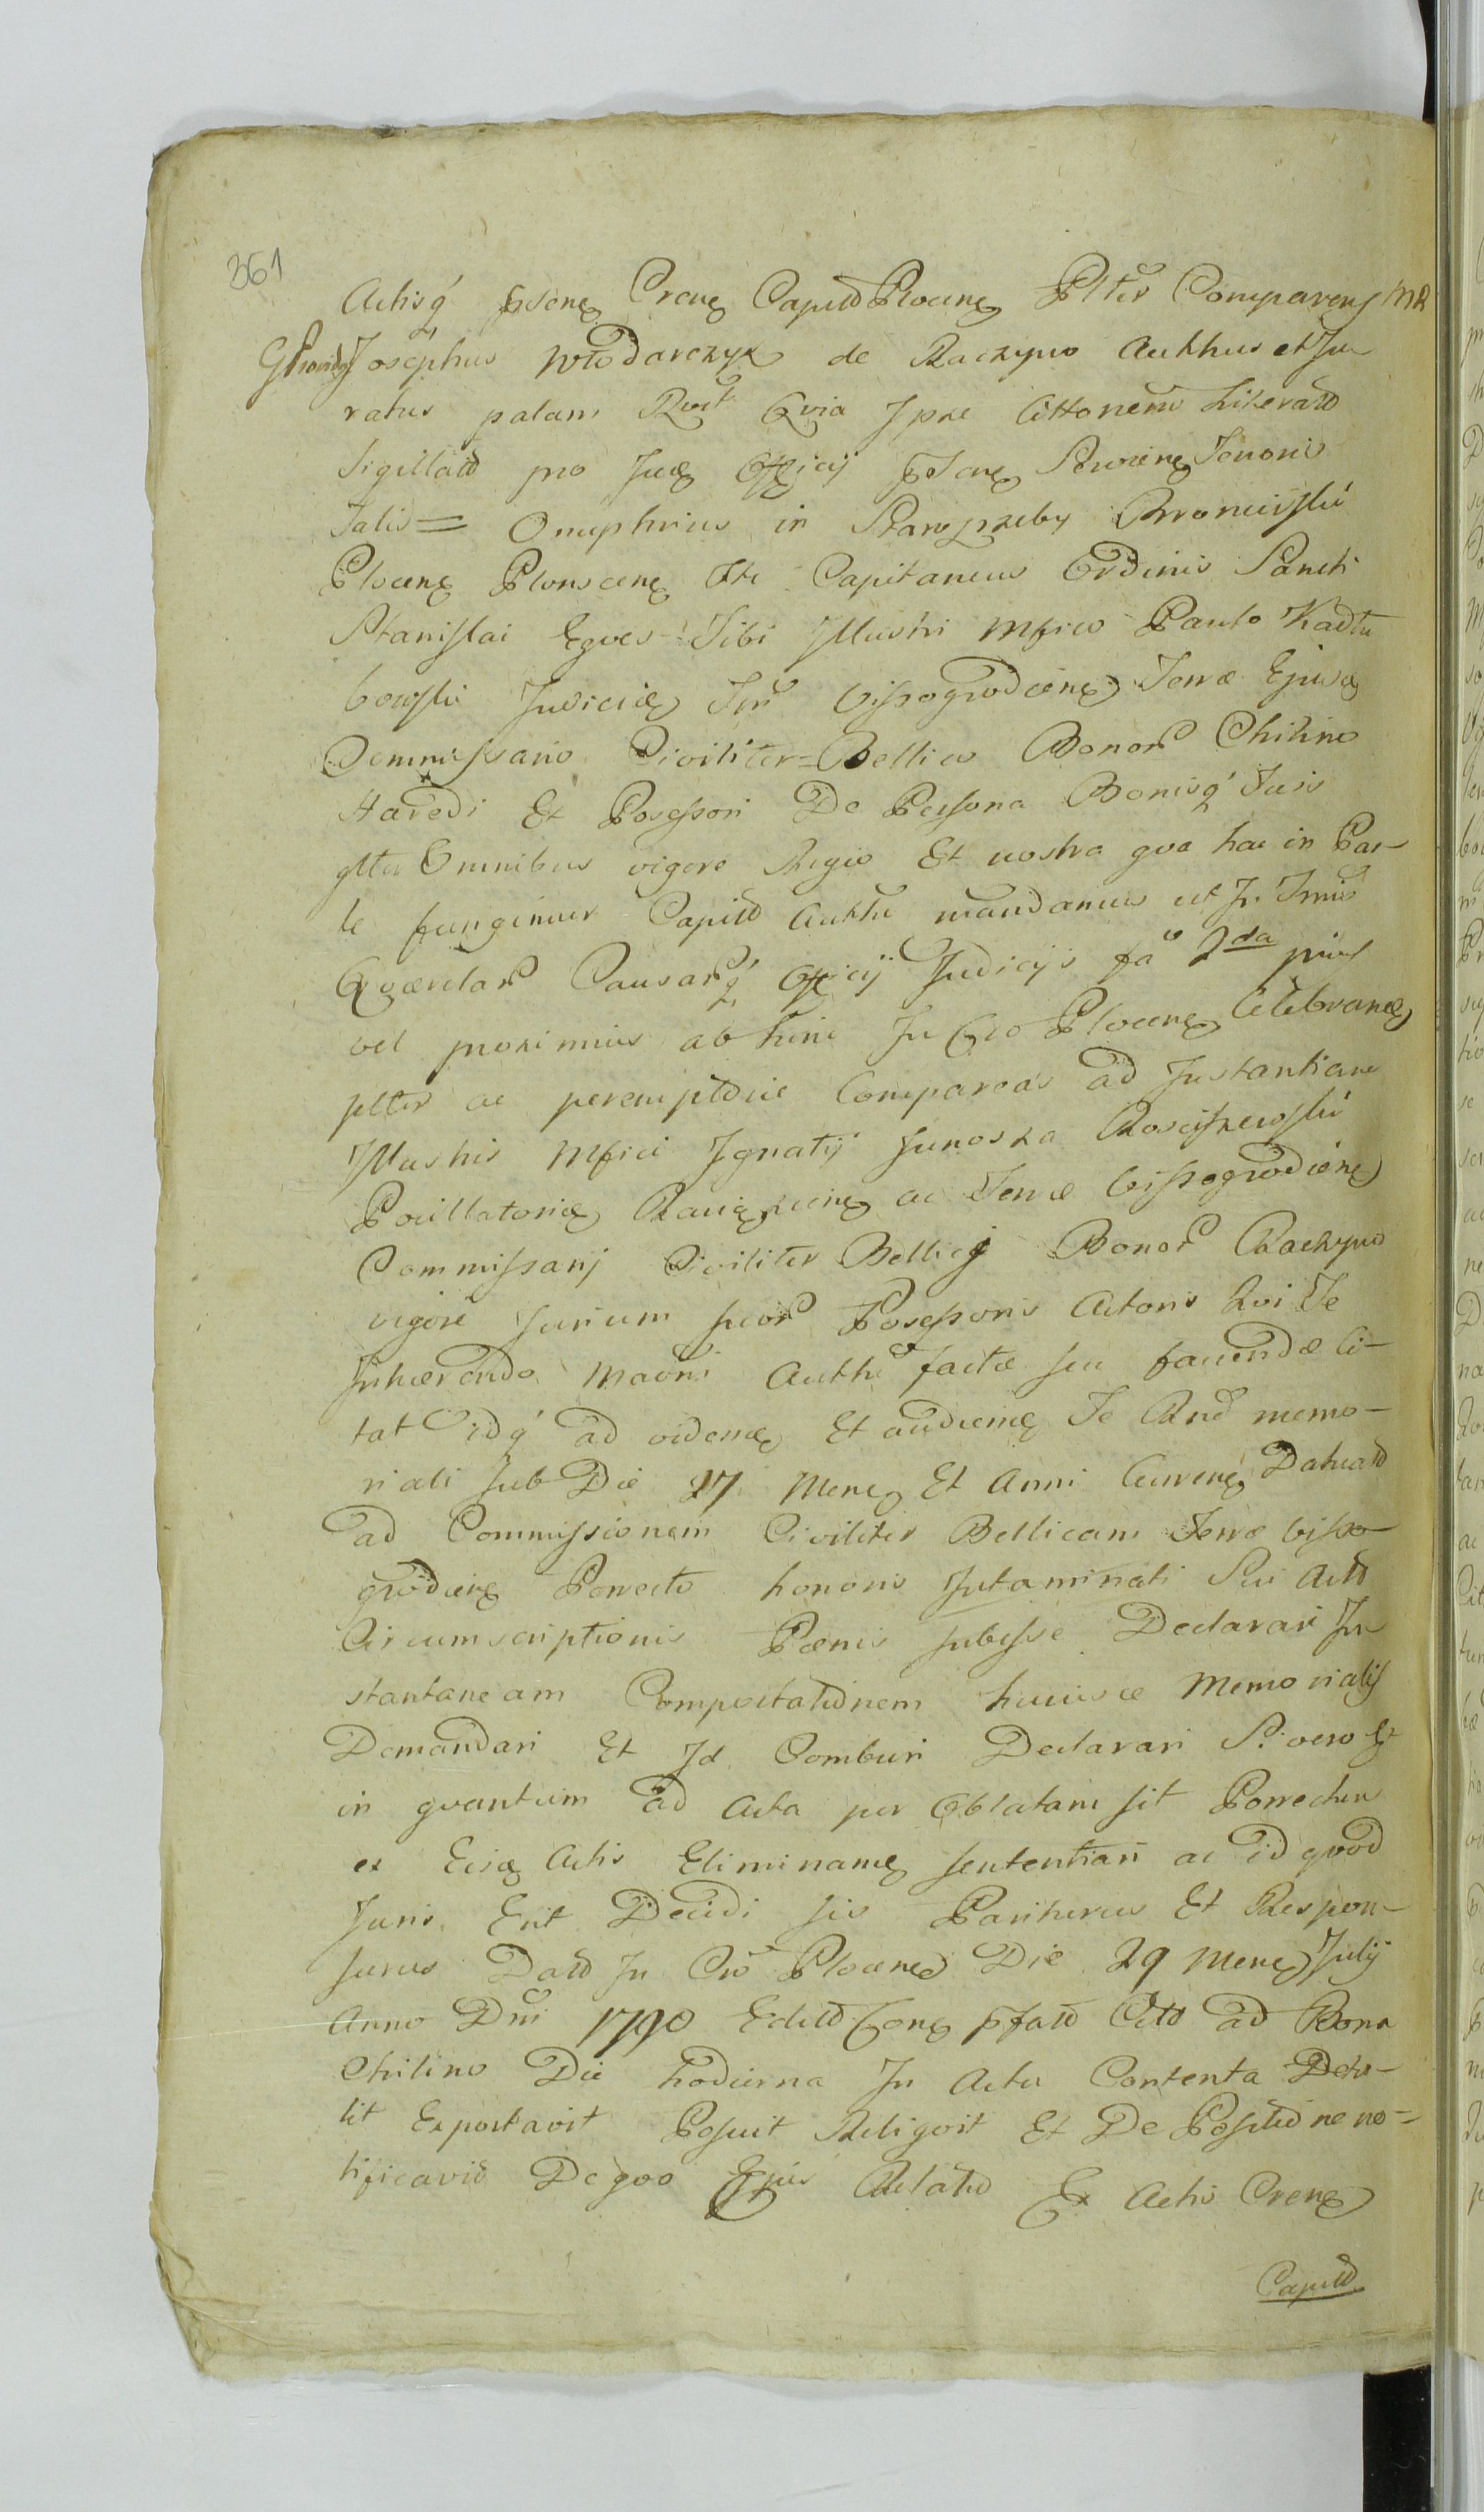 361
Actisq́ pꝛsens Crens Capitł Plocens Plter Comparens MR
GProvidꝰ Josephus Włodarczyk de Raczyno Autthus et Ju
ratus palam Rvit Qvia Ipse Cittonem Literałł
Sigillałł pro sua Officij pꝛsens Serviens Tenoris
Talis = Onuphrius in Starożreby Bromirski
Plocens Plonscens Ite Capitaneus Ordinis Sancti
Stanislai Eqves Tibi Illustri Mfico Paulo Kadłu
bowski Judiciæ Trrs Vissogrodiens Terræ Ejusd
Commissario Civiliter = Bellico Bonor Chilino
Hæredi Et Posessori De Persona Bonisq́ Tuis
gltter Omnibus vigore Regio Et nostra qva hac in Par-
te fungimur Capitł Autthe mandamus ut In Trmis
Qværelar Causarq́ Officij Judicijs fa 2da prius
vel proximius ab hinc In Cro Plocens Celebrans
pltter ac peremptorie Compareas ad Instantiam
Illustris Mfici Ignatij Junosza Rosciszewski
Pocillatoris Raciązcens ac Terræ Vissogrodiens
Commissarij Civiliter Bellicj Bonor Raczyno
vigore Jurium suor Posessoris Actoris Qvi Te
Inhærendo Maoni Autthe factæ seu faciendæ Ci-
tat idq́ ad videndum Et audiendum Te Rne memo-
riali sub Die 27 Mens Et Anni Currens Datuałł
ad Commissionem Civiliter Bellicam Terræ Visso-
grodiens Porrecto honoris Intaminati Sui Actł
Circumscriptionis Pænis subesse Declarari In
stantaneam Comportationem hujusce Memorialis
Demandari Et Id Comburi Declarari Si vero Et
in qvantum ad Acta per Oblatam sit Porrectum
ex Eisd Actis Eliminand sententiari ac id qvod
Juris Erit Decidi sis Pariturus Et Respon-
surus Dałł In Cro Plocens Die 29 Mens Julij
Anno Dni 1790 Edictł Cons pꝛfałł Citł ad Bona
Chilino Die hodierna In Actu Contenta Detu-
lit Exportavit Posuit Reliqvit Et De Positione no-
tificavit De qvo Ejus Relatio Ex Actis Crens
Capitł